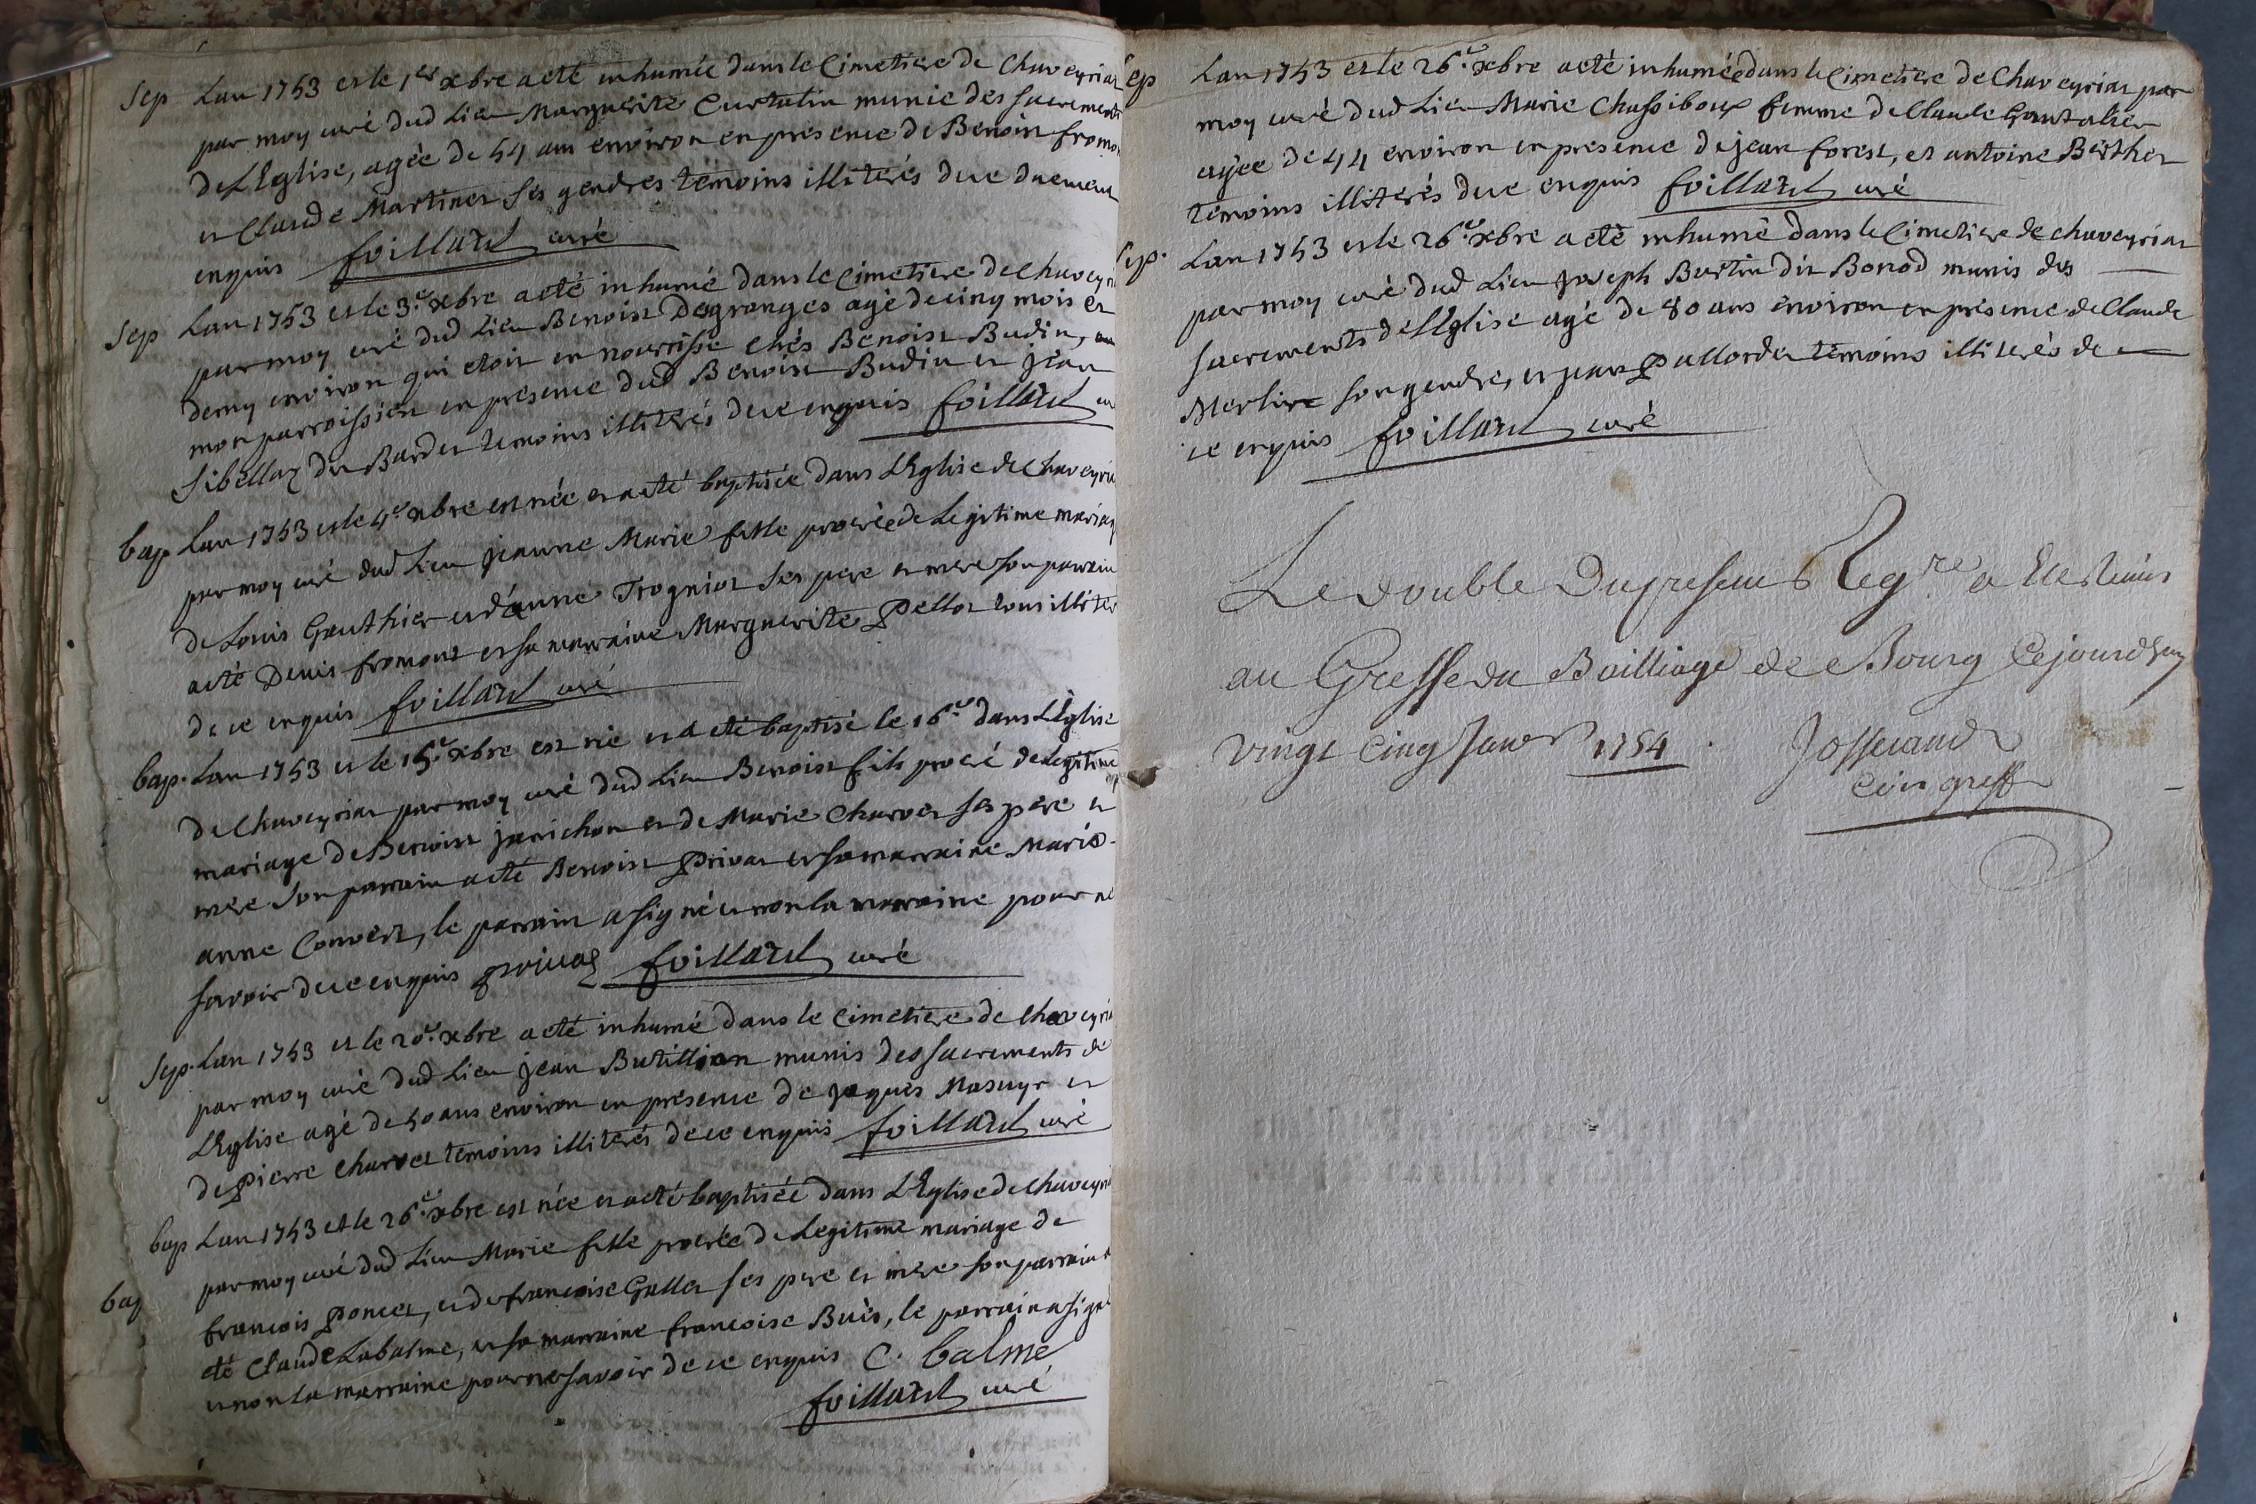 Sep Lan 1753 et le 1er xbre a eté inhumée dans le Cimetiere de Chaveyriat
par moy curé dud Lieu Marguerite Curtalin munie des sacrements
de L'Eglise, agée de 54 ans environ en presence de Benoist fromon
et Claude Martinet ses gendres témoins illiterés de ce duement
enquis foillard curé
Sep Lan 1753 et le 3.e xbre a eté inhumé dans le Cimetiere de Chaveyri
par moy curé dud Lieu Benoist Desgranges agé de cinq mois et
demy environ qui etoit en nourrisse chés Benoist Budin,
mon parroissien en presence dud Benoist Budin et jean
Sibellaz dit Bardet temoins illiterés de ce enquis foillard cu
bap Lan 1753 et le 4.e xbre est née et a eté baptisée dans L'Eglise de Chaveyria
par moy curé dud Lieu jeanne Marie fille procréée de Légitime mariag
de Louis Gauthier et d'anne Trogniot ses pere et mere son parrain
a eté Denis fromont et sa marraine Marguerite Pellot tous illiter
de ce enquis foillard curé
bap. Lan 1753 et le 15.e xbre est né et a eté baptisé le 16.e dans L'Eglise
de Chaveyriat par moy curé dud Lieu Benoist fils procré de Legitime
mariage de Benoist janichon et de Marie Charvet ses pere et
mere son parrain a eté Benoist Privat et sa marraine Marie
anne Convert, le parrain a signé et non la marraine pour ne
savoir de ce enquis privat foillard curé
Sep. Lan 1753 et le 20.e xbre a eté inhumé dans le Cimetiere de Chaveyria
par moy curé dud Lieu jean Butillion munis des sacrements de
L'Eglise agé de 50 ans environ en présence de jaques Masuyr et
de Pierre Charvet temoins illiterés de ce enquis foillard curé
bap Lan 1753 et le 26.e xbre est née et a eté baptisée dans L'Eglise de Chaveyri
par moy curé dud Lieu Marie fille procréée de Legitime mariage de
bap
francois Poncet, et de francoise Gallet ses pere et mere son parrain a
eté Claude Labalme, et sa marraine francoise Buès, le parrain a signé
et non la marraine pour ne savoir de ce enquis C. balme
foillard curé
Sep Lan 1753 et le 26.e xbre a eté inhumée dans le Cimetiere de Chaveyriat par
moy curé dud Lieu Marie Chassiboux femme de Claude Gautalier
agée de 44 environ en presence de jean forest, et antoine Berthet
témoins illiterés de ce enquis foillard curé
Sep. Lan 1753 et le 26.e xbre a eté inhumé dans le Cimetiere de Chaveyriat
par moy curé dud Lieu Joseph Burtin dit Bonod munis des
sacrements de L'Eglise agé de 80 ans environ en présence de Claude
Merlin son gendre, et jean Pallordet témoins illiterés de
ce enquis foillard curé
Le double Du present Reg.re a Eté Remis
au Greffe du Bailliage de Bourg Cejourdhuy
vingt Cinq Janvr 1754. Josserand
Com greff